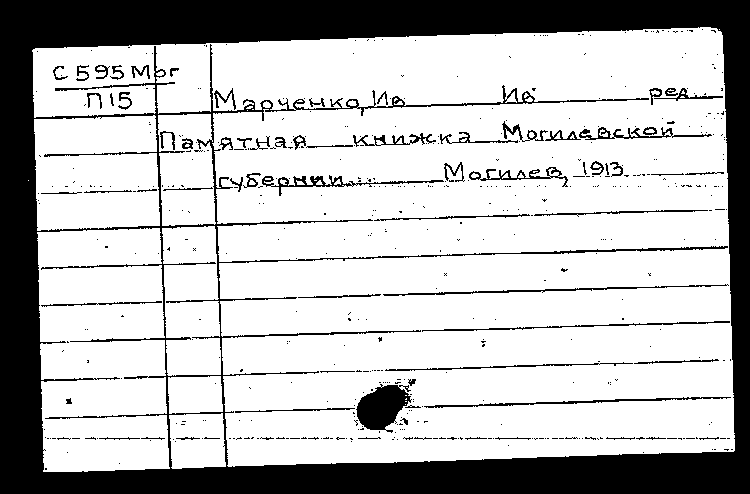 С 595 Мог
П 15
Марченко, Ив Ив ред..
Памятная книжка Могилевской
губернии.... Могилев, 1913